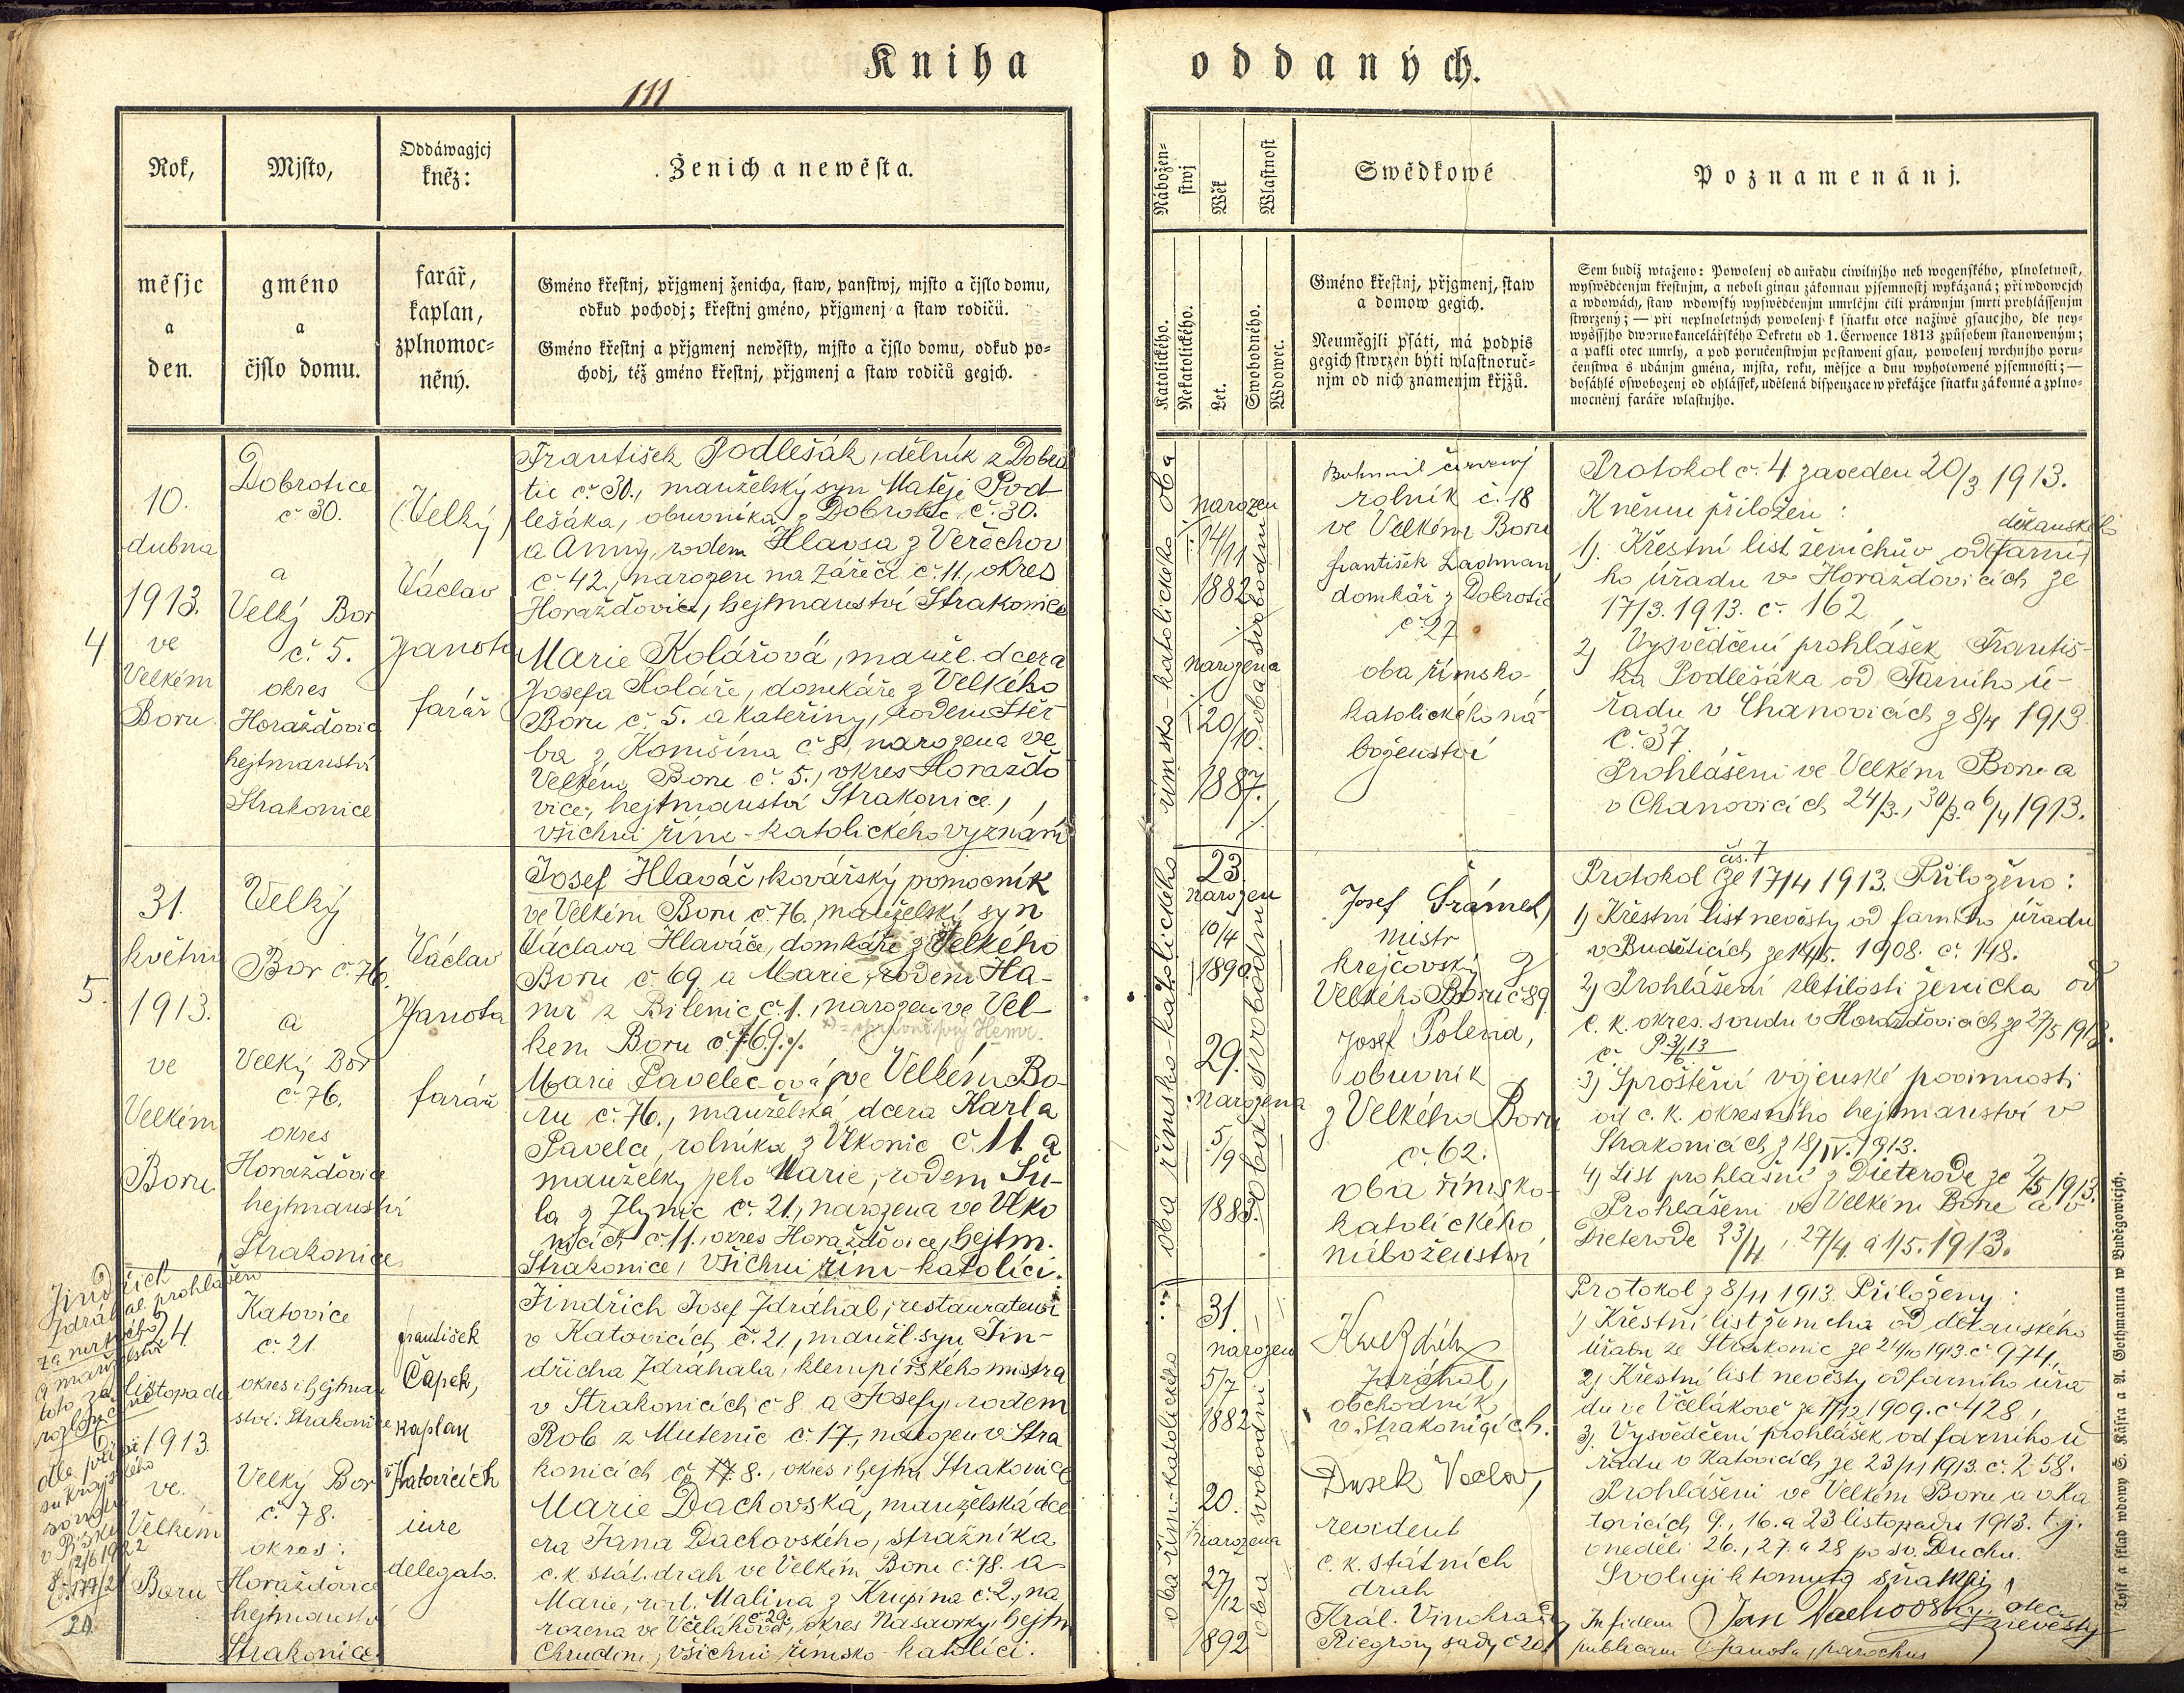 Kniha oddaných.
111
Rok,
měsjc
a
den.
Mjsto,
gméno
a
čjslo domu.
Oddáwagjcj
kněz:
farář,
kaplan,
zplnomoc-
něný.
Ženich a newěsta.
Gméno křestnj, přjgmenj ženicha, staw, panstwj, mjsto a čjslo domu,
odkud pochodj; křestnj gméno, přjgmenj a staw rodičů.
Gméno křestnj a přjgmenj newěsty, mjsto a čjslo domu, odkud po-
chodj, též gméno křestnj, přjgmenj a staw rodičů gegich.
4
10.
dubna
1913.
ve
Velkém
Boru
Dobrotice
č 30.
a
Velký Bor
č. 5.
okres
Horažďovic
hejtmanství
Strakonice
(Velký)
Václav
Janota
farář
František Podlešák, dělník z Dobro
tic č. 30., manželský syn Matěje Pod-
lešáka, obuvníka z Dobrotic č. 30.
a Anny, rodem Hlavsa z Veřechov
č 42., narozen na Zářečí č. 11., okres
Horažďovice, hejtmanství Strakonice
Marie Kolářová, manžel. dcera
Josefa Koláře, domkáře z Velkého
Boru č. 5. a Kateřiny, rodem Štěr
ba z Komšína č. 8, narozena ve
Velkém Boru č. 5., okres Horažďo
vice, hejtmanství Strakonice,
všichni řím-katolického vyznání
5.
31.
května
1913.
ve
Velkém
Boru
Velký
Bor č. 76.
a
Velký Bor
č. 76.
okres
Horažďovice
hejtmanství
Strakonice
Václav
Janota
farář
Josef Hlaváč, kovářský pomocník
ve Velkém Boru č. 76, manželský syn
Václava Hlaváče, domkáře z Velkého
Boru č. 69 a Marie, rodem Ha-
mr z Bílenic č. 1., narozen ve Vel-
kém Boru č. 69.
Marie Pavelec-ová ve Velkém Bo-
ru č. 76., manželská dcera Karla
Pavelce, rolníka z Vlkonic č. 11. a
manželky jeho Marie, rodem Šu-
la z Zlynic č. 21., narozena ve Vlko
nicích č. 11., okres Horažďovice, hejtm.
Strakonice, všichni řím-katolíci.
Jindřich
Zdráhal prohlášen
za mrtvého
a manželství
toto za
rozloučené
soudu
v Písku
12/6 1922
24.
listopadu
1913.
ve
Velkém
Boru
Katovice
č. 21
okres i hejtman
ství: Strakonice
Velký Bor
č. 78.
okres:
Horažďovice
hejtmanství
Strakonice.
František
Čapek,
kaplan
v Katovicích
iure
delegato.
Jindřich Josef Zdráhal, restauratér
v Katovicích č. 21., manžl. syn Jin-
dřicha Zdráhala, klempířského mistra
v Strakonicích č 8. a Josefy, rodem
Rob z Mutenic č. 17., narozen v Stra
konicích č. 8., okres i hejtm Strakonice
Marie Dachovská, manželská dce
ra Jana Dachovského, strážníka
c. k. stát. drah ve Velkém Boru č. 78. a
Marie, rod. Malina z Krupína č. 2., na
rozena ve Včelákově č 29., okres Nasavrky, hejtm
Chrudim, všichni římsko-katolíci.
Nábožen-
stwj
Katolického.
Nekatolického.
Wěk
Let.
Wlastnost
Swobodného.
Wdowec.
Swědkowé
Gméno křestnj, přjgmenj, staw
a domow gegich.
Neuměgjli psáti, má podpis
gegich stwrzen býti wlastnoruč-
njm od nich znamenjm křjžů.
Poznamenánj.
Sem budiž wtaženo: Powolenj od auřadu ciwilnjho neb wogenského, plnoletnost,
wyswědčenjm křestnjm, a neboli ginau zákonnau pjsemnostj wykázaná; při wdowcjch
a wdowách, staw wdowský wyswědčenjm umrlčjm čili práwnjm smrti prohlássenjm
stwrzený; — při neplnoletných powolenj k sňatku otce naživě gsaucjho, dle ney-
wyššjho dwornokancelářského Dekretu od 1. Čerwence 1813 způsobem stanoweným;
a pakli otec umrlý, a pod poručenstwjm postaweni gsau, powolenj wrchnjho poru-
čenstwa s udánjm gména, mjsta, roku, měsjce a dnu wyhotowené pjsemnosti; —
dosáhlé oswobozenj od ohlášek, udělená dispenzace w překážce sňatku zákonné a zplno-
mocněnj faráře wlastnjho.
oba římsko-katolického
narozen
14/11
1882
narozena
20/10.
1887.
oba svobodni
Bohumil Červený
rolník č. 18
ve Velkém Boru
František Ladman
domkář z Dobrotic
č 27
oba římsko-
katolického ná-
boženství
Protokol č. 4 zaveden 20/3 1913.
K němu přiloženi:
1). Křestní list ženichův od děkanské
ho úřadu v Horažďovicích ze
17/3. 1913. č. 162
2) Vysvědčení prohlášek Františ-
ka Podlešáka od Farního ú-
řadu v Chanovicích z 8/4 1913.
č. 37.
Prohlášeni ve Velkém Boru a
v Chanovicích 24/3., 30/3. a 6/4 1913.
oba římsko-katolického
23.
narozen
10/4
1890.
29.
narozena
5/9
1883.
oba svobodni
Josef Šrámek,
mistr
krejčovský z
Velkého Boru č 89
Josef Polena,
obuvník
z Velkého Boru
č. 62.
oba římsko-
katolického
náboženství
čís. 7
Protokol ze 17/4 1913. Přiloženo:
1) Křestní list nevěsty od farního úřadu
v Buděticích ze 14/5. 1908. č. 148.
2) Prohlášení zletilosti ženicha od
c. k. okres. soudu v Horažďovicích ze 27/5 1913.
3) Sproštění vojenské povinnosti
od c. k. okresního hejtmanství v
Strakonicích z 18/IV. 1913.
4) List prohlášní z Dieterode ze 2/5 1913.
Prohlášeni ve Velkém Boru a v
Dieterode 23/4, 27/4. a 1/5. 1913.
oba řím-katolického
31.
narozen
5/7
1882
20.
narozena
27/12
1892
oba svobodni
Zdráhal,
obchodník
v Strakonicích.
Dusek Vaclav,
revident
c. k. státních
drah
Král. Vinohrady
Riegrovy sady č 20
Protokol z 8/11 1913. Přiloženy:
1) Křestní list ženicha od děkanského
úřadu ze Strakonic ze 21/10 1913. č 974,
2) Křestní list nevěsty od farního úřa
du ve Včelákově ze 7/12 1909. č 428,
3) Vysvědčení prohlášek od farního ú
řadu v Katovicích ze 23/11 1913. č. 258.
Prohlášeni ve Velkém Boru a v Ka
tovicích 9., 16. a 23 listopadu 1913. tj.
o neděli 26., 27. a 28 po sv. Duchu.
Svoluji k tomuto sňatku
Jan Dachovský, otec
nevěsty
In fidem
publicam V. Janota, parochus
Tisk a sklad wdowy E. Kásra a A. Gothmanna w Buděgowicjch.